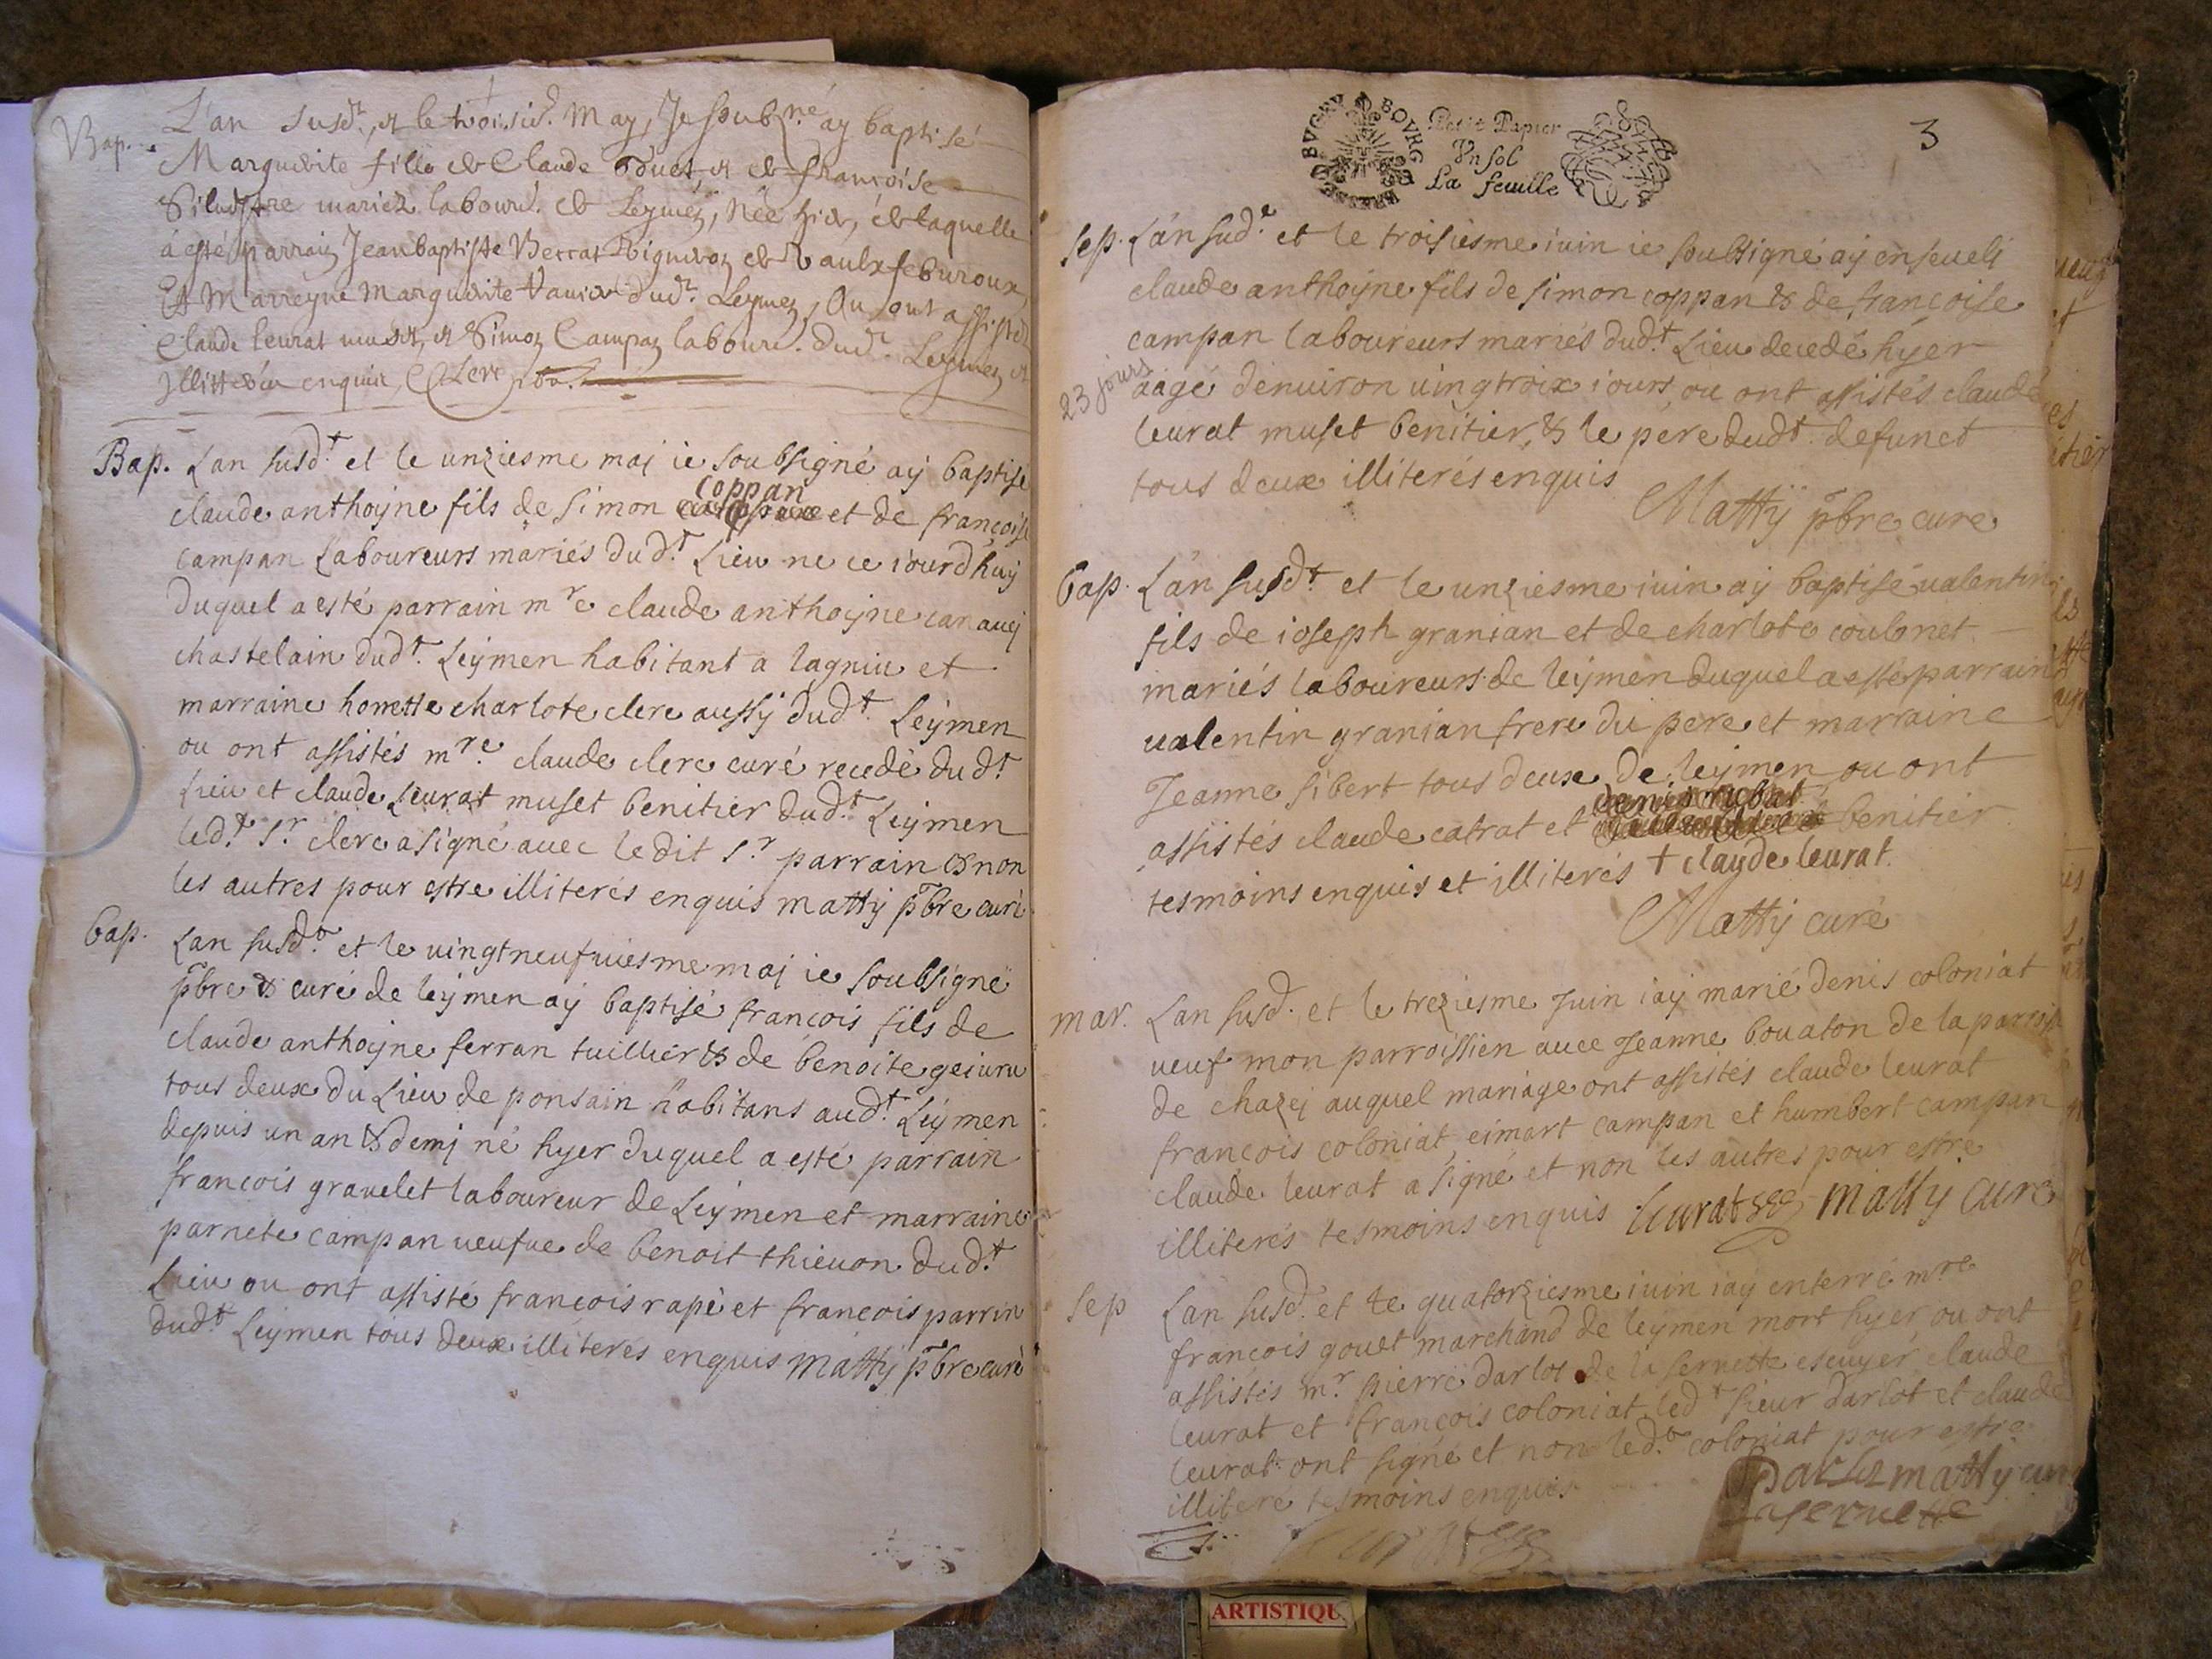 Bap. L'an susdt, et le troisie. May, Je soubzné ay baptisé
Marguerite fille de Claude et de françoise
mariez laboure. de Leymen, Née hier, de laquelle
a esté parrain Jean baptiste Berrat vigneron de
Et Marreyne Marguerite dudt. Leymen, Ou ont assisté
Claude leurat muset, et Simon Campan laboure. dudt. Leymen
enquis, Clerc
Bap. Lan susdt. et le unziesme maj ie soubsigné aÿ baptisé
claude anthoyne fils de simon coppan et de françoise
campan Laboureurs mariés dudt. Lieu ne ce iourdhuÿ
duquel a esté parrain mre claude anthoyne canauej
chastelain dudt. Leÿmen habitant a lagniu et
marraine honneste charlote clerc aussÿ dudt. Leÿmen
ou ont assistés mre. claude clerc curé recedé dudt
Lieu et claude leurat muset benitier dudt. Leÿmen
ledt. sr. clerc a signé auec le dit sr. parrain & non
les autres pour estre illiterés enquis mattÿ pbre curé
bap. Lan susdt. et le uingtneufuiesme maj ie soubsigné
pbre & curé de leÿmen aÿ baptisé françois fils de
claude anthoyne ferran tuillier & de benoite geiuru
tous deux du Lieu de ponsain habitans audt. Leÿmen
depuis un an & demj né hyer duquel a esté parrain
francois grauelet laboureur de Leÿmen et marraine
parnete campan ueufue de benoit thieuon dudt.
Lieu ou ont assisté françois rapé et francois parrin
dudt. Leÿmen tous deux illiterés enquis mattÿ pbre curé
BRESSE BVGEY BOVRG
Petit Papier
Vn sol
La feuille
3
sep. L'an sudt. et le troisiesme iuin ie soubsigné aÿ enseueli
claude anthoyne fils de simon coppan & de françoise
campan laboureurs mariés dudt. Lieu decedé hyer
23 jours
aagé denuiron uingtroix iours, ou ont assistés claude
leurat muset benitier, & le pere dudt. defunct
tous deux illiterés enquis
Mattÿ pbre cure
bap. L'an susdt. et le unziesme iuin aÿ baptisé ualentin
fils de ioseph granian et de charlote coulonet
mariés laboureurs de leÿmen duquel a esté parrain
ualentin granian frere du pere et marraine
Jeanne sibert tous deux de leÿmen ou ont
assistés claude catrat et denis rubat benitier
tesmoins enquis et illiterés + claude leurat.
Mattÿ curé
mar. Lan susd. et le treziesme Juin iaÿ marié denis coloniat
ueuf mon parroissien auec Jeanne bouaton de la parroisse
de chazej auquel mariage ont assistés claude leurat
francois coloniat, eimart campan et humbert campan
claude leurat a signé et non les autres pour estre
illiterés tesmoins enquis leurat mattÿ curé
sep Lan susd. et le quatorziesme iuin iaÿ enterré mre
françois gouet marchand de leÿmen mort hyer ou ont
assistés mr. pierre darlot de la seruette escuyer claude
leurat et françois coloniat ledt sieur darlot et claude
leurat ont signé et non ledt. coloniat pour estre
illiteré tesmoins enquis.
Darlot mattÿ cure
Laseruette
leurat
ARTISTIQU